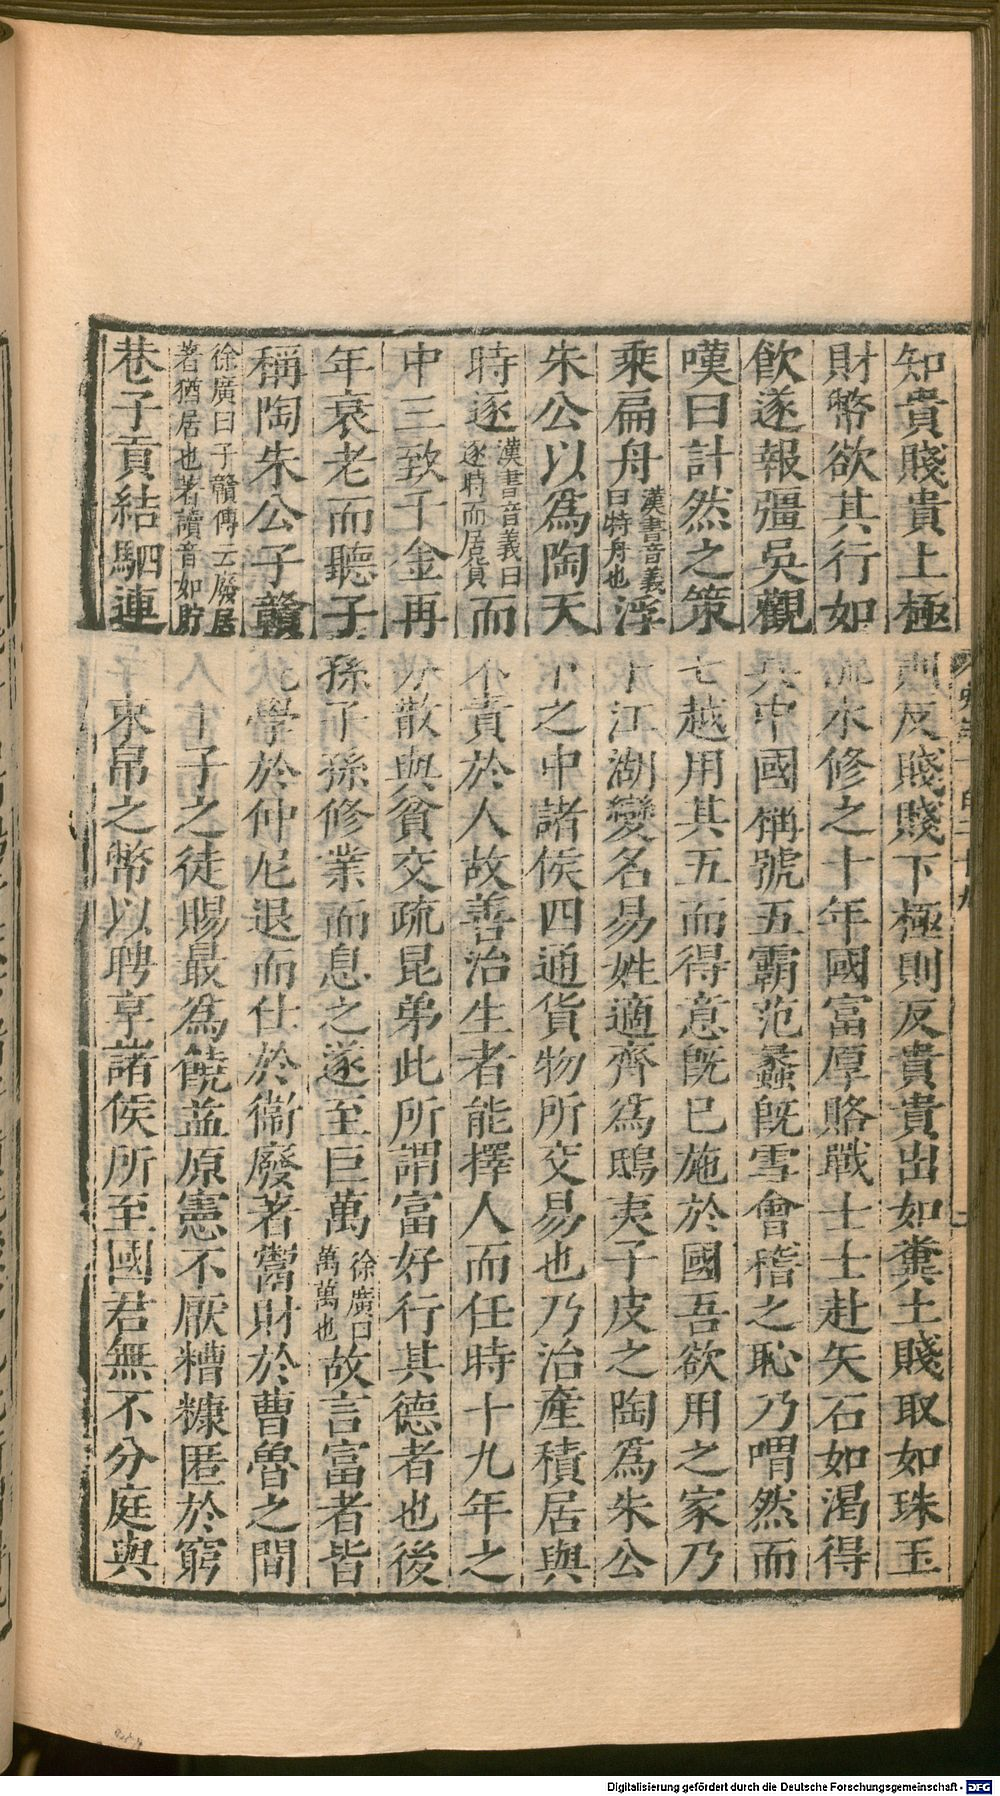 知貴賤貴上極則反賤賤下極則反貴貴出如糞土賤取如珠玉
財幣欲其行如流水修之十年國富厚賂戰士士赴矢石如渴得
飲遂報彊吳觀兵中國稱號五霸范蠡旣雪會稽之恥乃喟然而
嘆曰計然之策七越用其五而得意旣已施於國吾欲用之家乃
乘扁舟漢書音義曰特舟也浮于江湖變名易姓適齊爲鴟夷子皮之陶爲朱公
朱公以爲陶天下之中諸侯四通貨物所交易也乃治產積居與
時逐漢書音義曰逐時而居貨而不責於人故善治生者能擇人而任時十九年之
中三致千金再分散與貧交疏昆弟此所謂富好行其德者也後
年衰老而聽子孫子孫修業而息之遂至巨萬徐廣曰萬萬也故言富者皆
稱陶朱公子贛旣學於仲尼退而仕於衞廢著鬻財於曹魯之間
徐廣曰子贛傳云廢居著猶居也著讀音如貯十子之徒賜最爲饒益原憲不厭糟糠匿於窮
巷子貢結駟連束帛之幣以聘享諸侯所至國君無不分庭與
Digitalisierung gefördert durch die Deutsche Forschungsgemeinschaft - DFG